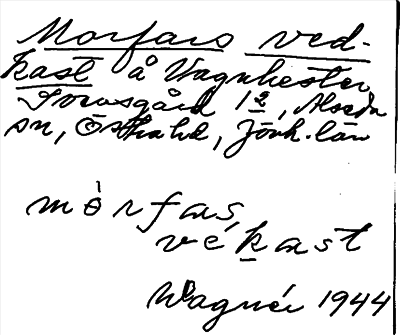 Morfars ved-
kast å Vagnhester
Torvsgård 1 2, Alseda
sn, Östra hd, Jönk. län
mòrfas
vékast
Wagnér 1944